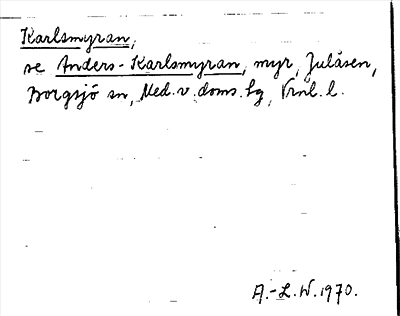 Karlsmyran,
se Anders-Karlsmyran, myr, Julåsen,
Borgsjö sn, Med. v. doms. hg, Vrnl. l.
A.-L. W. 1970.